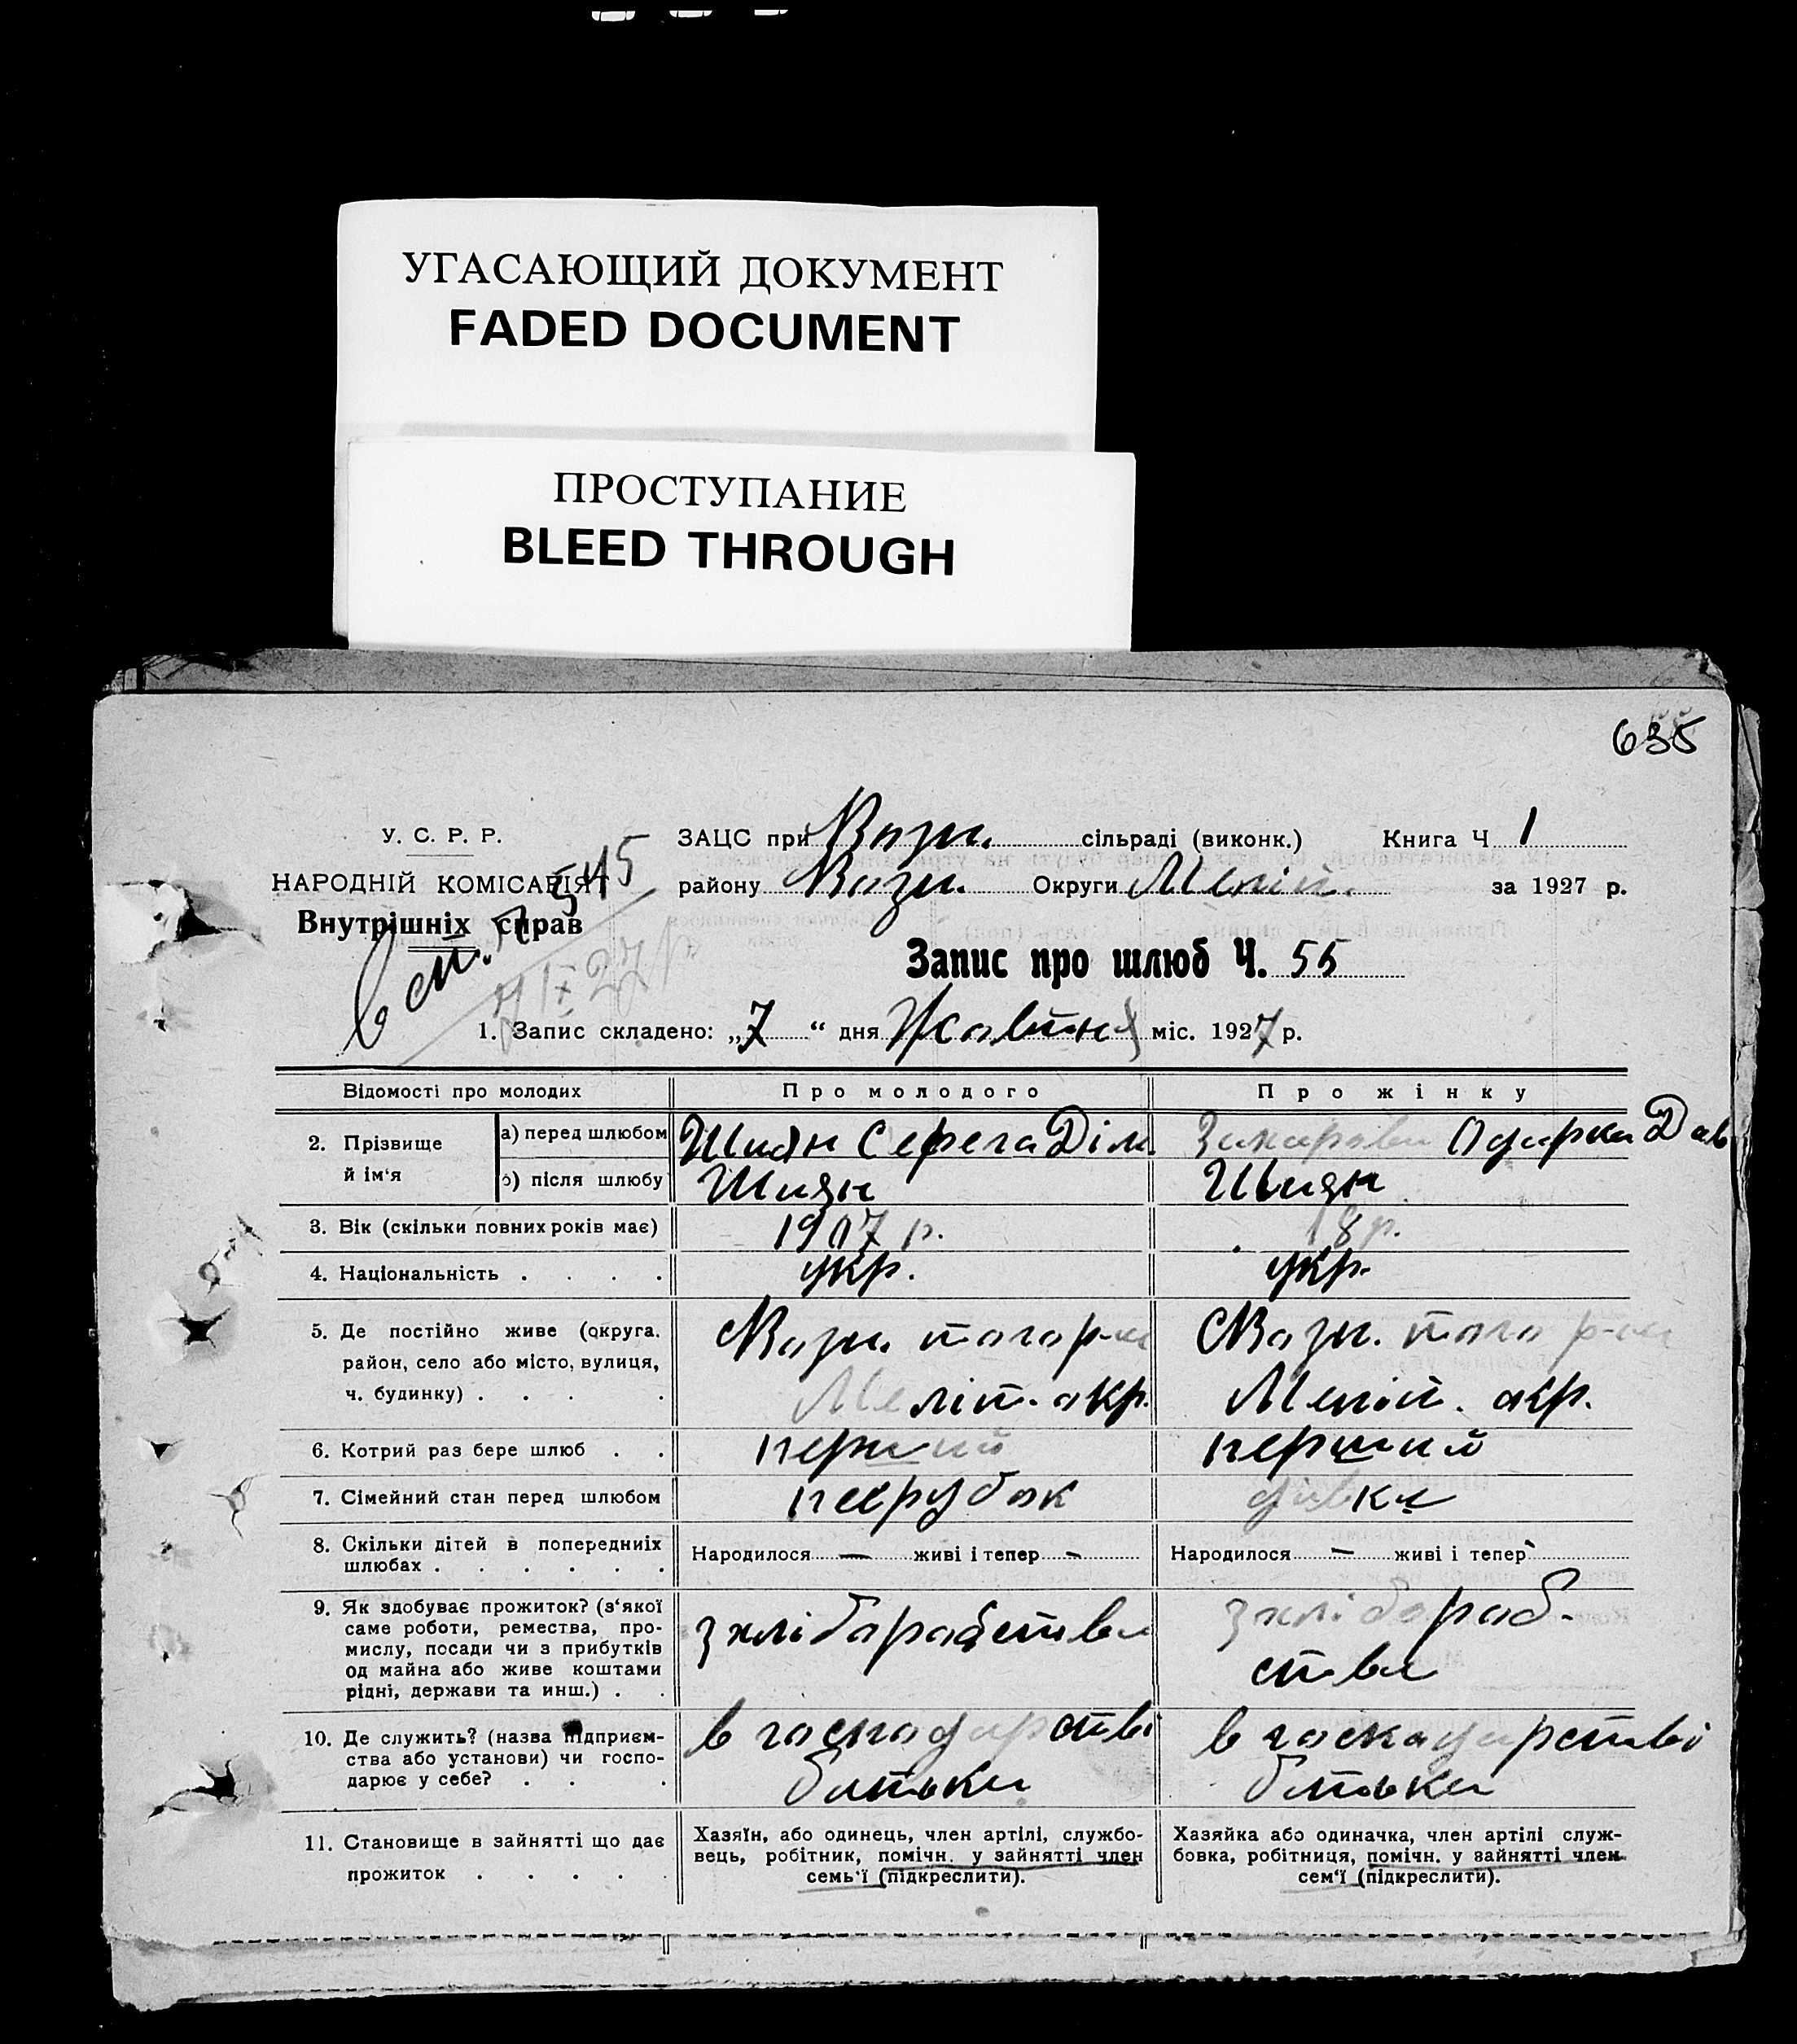 УГАСАЮЩИЙ ДОКУМЕНТ
FADED DOCUMENT
ПРОСТУПАНИЕ
BLEED THROUGH
635
У. С. Р. Р.
НАРОДНІЙ КОМІСАРІЯТ
Внутрішніх справ
545
ЗАЦС при Возн. сільраді (виконк.) Книга Ч 1
району Возн. Округи Меліт. за 1927 р.
Запис про шлюб Ч. 55
1. Запис складено: „7“ дня Жовтня міс. 1927 р.
Відомості про молодих
Про молодого
Про жінку
2. Прізвище й ім‘я
а) перед шлюбом Шиян Сергга Дім Одарка Дав
б) після шлюбу Шиян Шиян
3. Вік (скільки повних років має) 1907 р. 18 р.
4. Національність . . . . укр. укр.
5. Де постійно живе (округа. Возн. того р-на Возн. того р-на
район, село або місто, вулиця,
ч. будинку) . . . Меліт. окр. Меліт. окр.
6. Котрий раз бере шлюб . . перший перший
7. Сімейний стан перед шлюбом парубок дівка
8. Скільки дітей в попередніх Народилося — живі і тепер - Народилося — живі і тепер
шлюбах . . . . . .
9. Як здобуває прожиток? (з‘якої з хліборобства з хлібороб-
саме роботи, ремества, про- ства
мислу, посади чи з прибутків
од майна або живе коштами
рідні, держави та инш.) . .
10. Де служить? (назва підприєм- в господарстві в господарстві
ства або установи) чи госпо- батька батька
дарює у себе? . . .
11. Становище в зайнятті що дає
прожиток . . . . .
Хазяїн, або одинець, член артілі, службо-
вець, робітник, помічн. у зайнятті член
семь‘ї (підкреслити).
Хазяйка або одиначка, член артілі служ-
бовка, робітниця, помічн. у зайнятті член
сем‘ї (підкреслити).